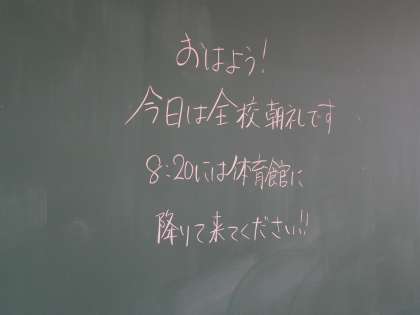 おはよう!
今日は全校朝礼です
8:20には体育館に
降りて来てください!!